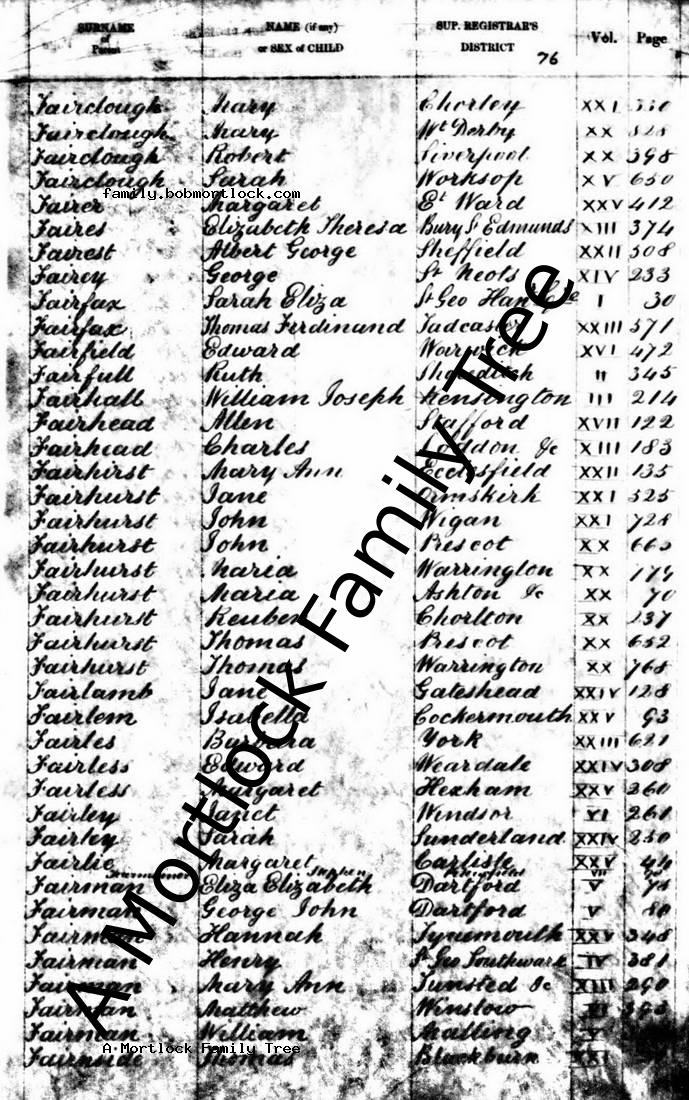 SURNAME of Parent NAME (if any) or SEX of CHILD SUP. REGISTRAR'S DISTRICT 76 Vol. Page
Fairclough Mary Chorley XXI
Fairclough Mary Wt Derby XX 828
Fairclough Robert Liverpool XX 398
Fairclough Sarah Worksop XV 650
family.bobmortlock.com
Fairer Margaret Et Ward XXV 412
Faires Elizabeth Theresa Bury St Edmunds XIII 374
Fairest Albert George Sheffield XXII 508
Fairey George St Neots XIV 233
Fairfax Sarah Eliza St Geo Han Sqe I 30
Fairfax Thomas Ferdinand Tadcaster XXIII 571
Fairfield Edward Warwick XVI 472
Fairfull Ruth Shoreditch II 345
Fairhall William Joseph Kensington III 214
Fairhead Allen Stafford XVII 122
Fairhead Charles Loddon &c XIII 183
Fairhirst Mary Ann Ecclesfield XXII 135
Fairhurst Jane Ormskirk XXI 525
Fairhurst John Wigan XXI 728
Fairhurst John Prescot XX 665
Fairhurst Maria Warrington XX
Fairhurst Maria Ashton &c XX 70
Fairhurst Reuben Chorlton XX 237
Fairhurst Thomas Prescot XX 652
Fairhurst Thomas Warrington XX 768
Fairlamb Jane Gateshead XXIV 128
Fairlem Isabella Cockermouth XXV 93
Fairles Barbara York XXIII 621
Fairless Edward Weardale XXIV 308
Fairless Margaret Hexham XXV 260
Fairley Janet Windsor VI 261
Fairley Sarah Sunderland XXIV 250
Fairlie Margaret Carlisle XXV 44
Stephen VII
Fairman Eliza Elizabeth Dartford V
Fairman George John Dartford V 80
Fairman Hannah Tynemouth XXV 348
Fairman Henry St Geo Southwark IV 381
Fairman Mary Ann Tunsted &c XIII 290
Fairman Matthew Winslow
Fairman William Malling V
Fairnside Thomas Blackburn XXI
A Mortlock Family Tree
A Mortlock Family Tree